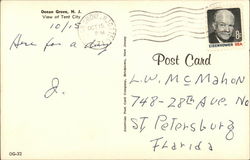 Ocean Grove, N. J.
View of Tent City
10/15
Here for a day
J.
Post Card
8c
EISENHOWER USA
L.W. McMahon
748-28th Ave. No
St Petersburg
Florida
OG-32